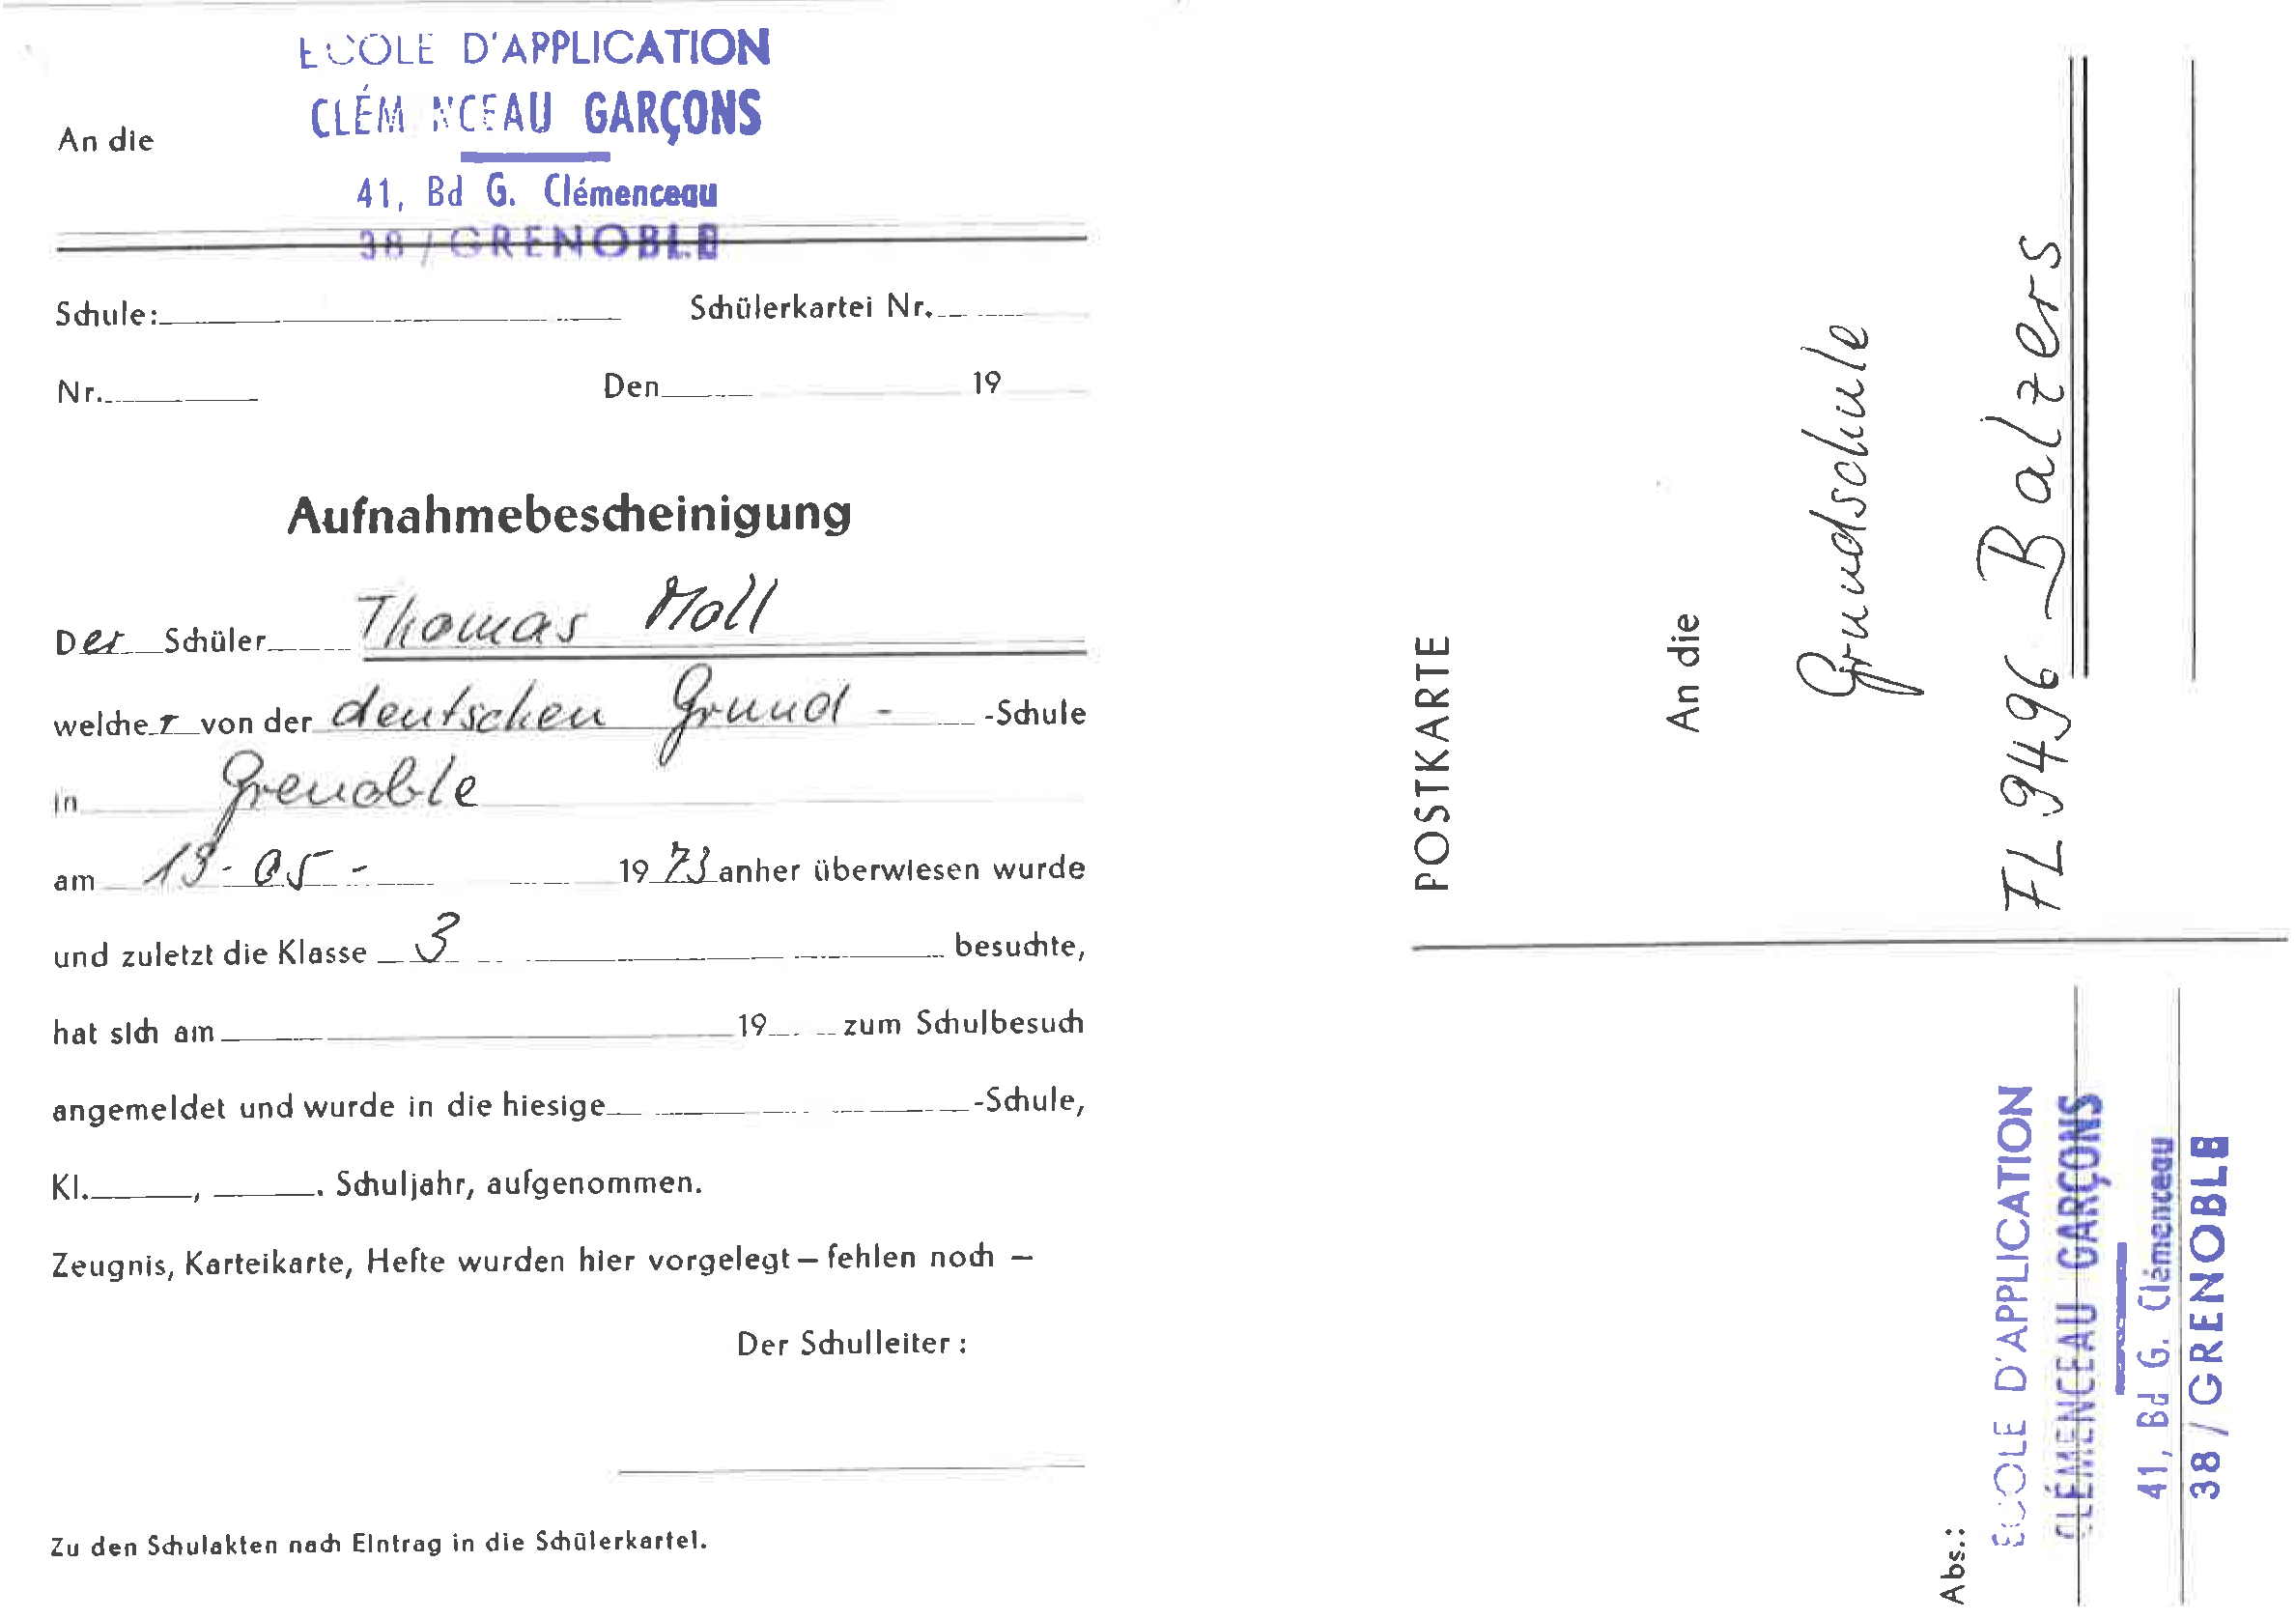 ECOLE D'APPLICATION
CLÉMENCEAU GARÇONS
An die
41, Bd G. Clémenceau
38 / GRENOBLE
Schule: Schülerkartei Nr.
Nr. Den 19
Aufnahmebescheinigung
Der Schüler Thomas Moll
welcher von der deutschen Grund - -Schule
in Grenoble
am 19-05- 1973 anher überwiesen wurde
und zuletzt die Klasse 3 besuchte,
hat sich am 19 zum Schulbesuch
angemeldet und wurde in die hiesige -Schule,
Kl. , . Schuljahr, aufgenommen.
Zeugnis, Karteikarte, Hefte wurden hier vorgelegt – fehlen noch –
Der Schulleiter :
Zu den Schulakten nach Eintrag in die Schülerkartei.
POSTKARTE
An die
Grundschule
FL 9496 Balzers
Abs.:
ECOLE D'APPLICATION
CLÉMENCEAU GARÇONS
41, Bd G. Clémenceau
38 / GRENOBLE